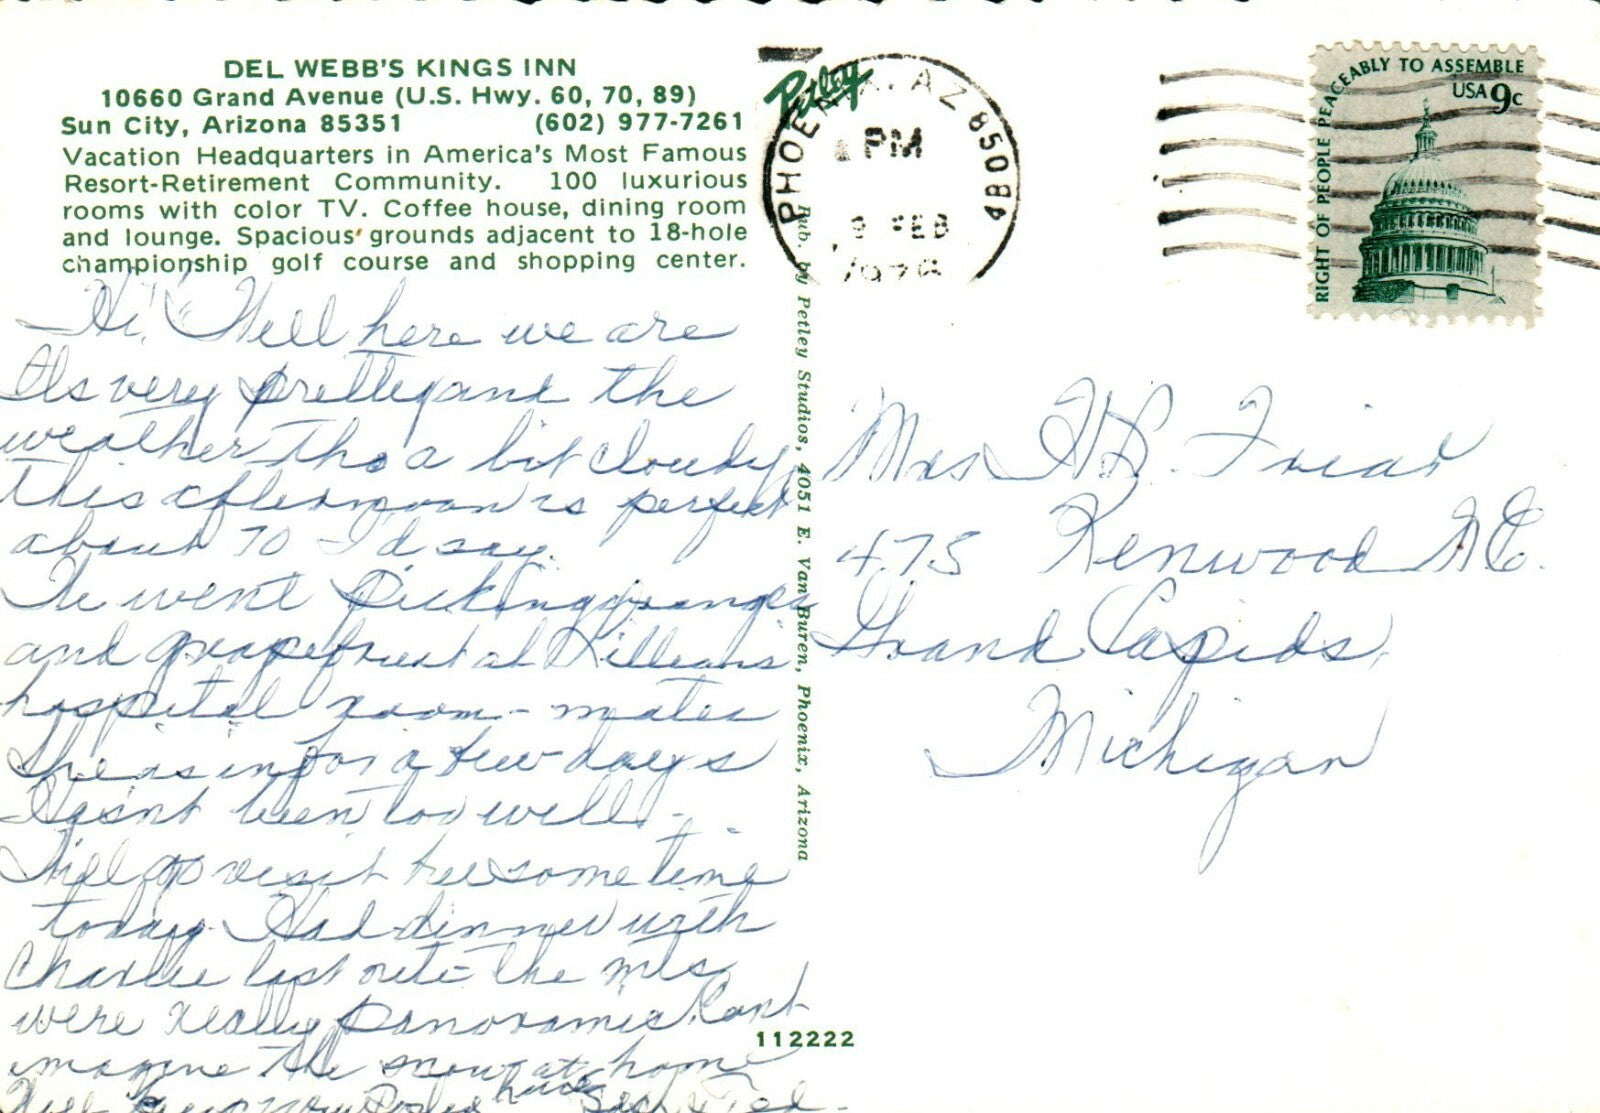 DEL WEBB'S KINGS INN
10660 Grand Avenue (U.S. Hwy. 60, 70, 89)
Sun City, Arizona 85351 (602) 977-7261
Vacation Headquarters in America's Most Famous
Resort-Retirement Community. 100 luxurious
rooms with color TV. Coffee house, dining room
and lounge. Spacious grounds adjacent to 18-hole
championship golf course and shopping center.
Hi! Well here we are
Its very pretty and the
weather tho a bit cloudy
this afternoon is perfect
about 70 I'd say.
We went picking oranges
and grapefruit at Lillian's
hospital room-mates
She is in for a few days
Hasn't been too well.
Will go visit her sometime
today. Had dinner with
Charlie last nite - the mts
were really panoramic. Cant
imagine the snow at home
Will keep you posted
have
Petley
PHOENIX, AZ 850
PM
9 FEB
197
Pub. by Petley Studios, 4051 E. Van Buren, Phoenix, Arizona
112222
RIGHT OF PEOPLE PEACEABLY TO ASSEMBLE
USA 9c
Mrs H. Friar
475 Kenwood N.E.
Grand Rapids,
Michigan